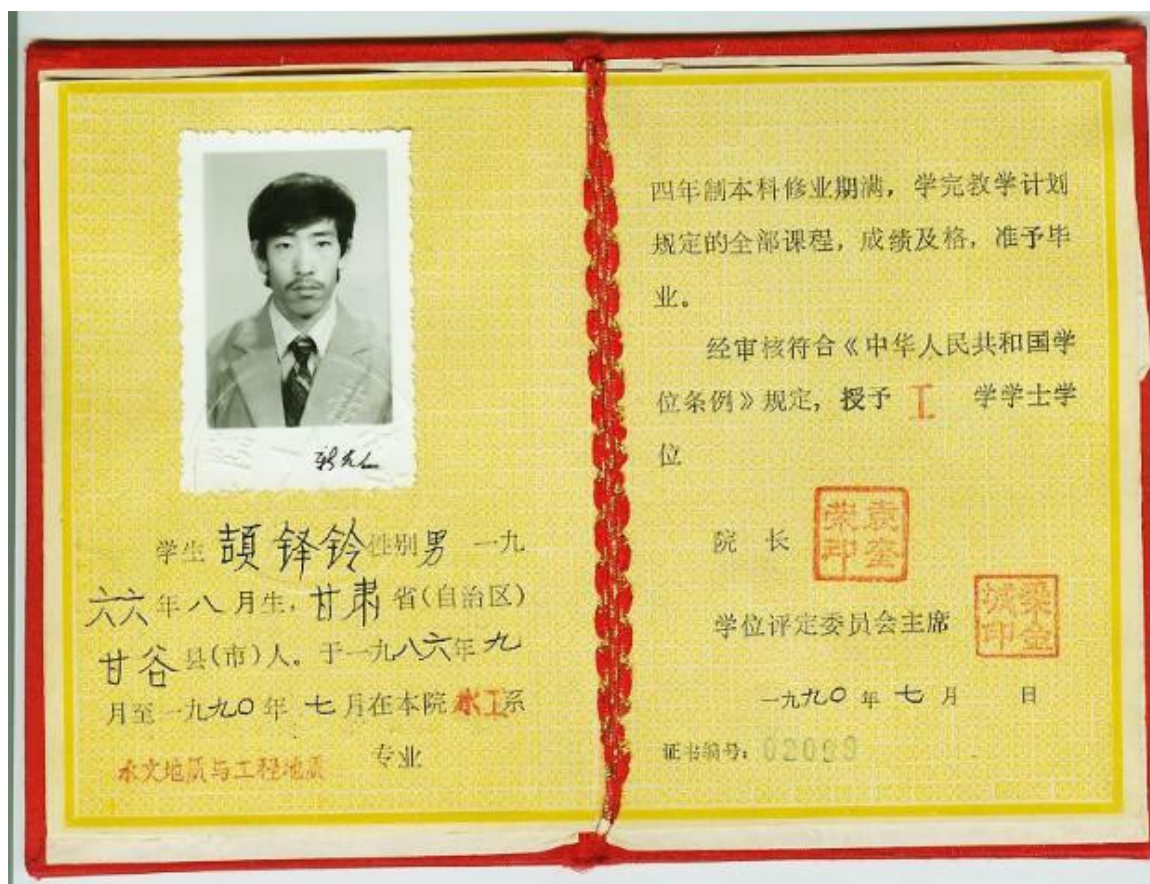 学生 颉铎铃 性别 男 一九
六六年八月生，甘肃省(自治区)
甘谷县(市)人。于一九八六年九
月至一九九〇年七月在本院水工系
水文地质与工程地质 专业
四年制本科修业期满，学完教学计划
规定的全部课程，成绩及格，准予毕
业。
经审核符合《中华人民共和国学
位条例》规定，授予 工 学学士学
位
院 长
袁奎荣印
学位评定委员会主席
梁金城印
一九九〇年七月 日
证书编号：02099